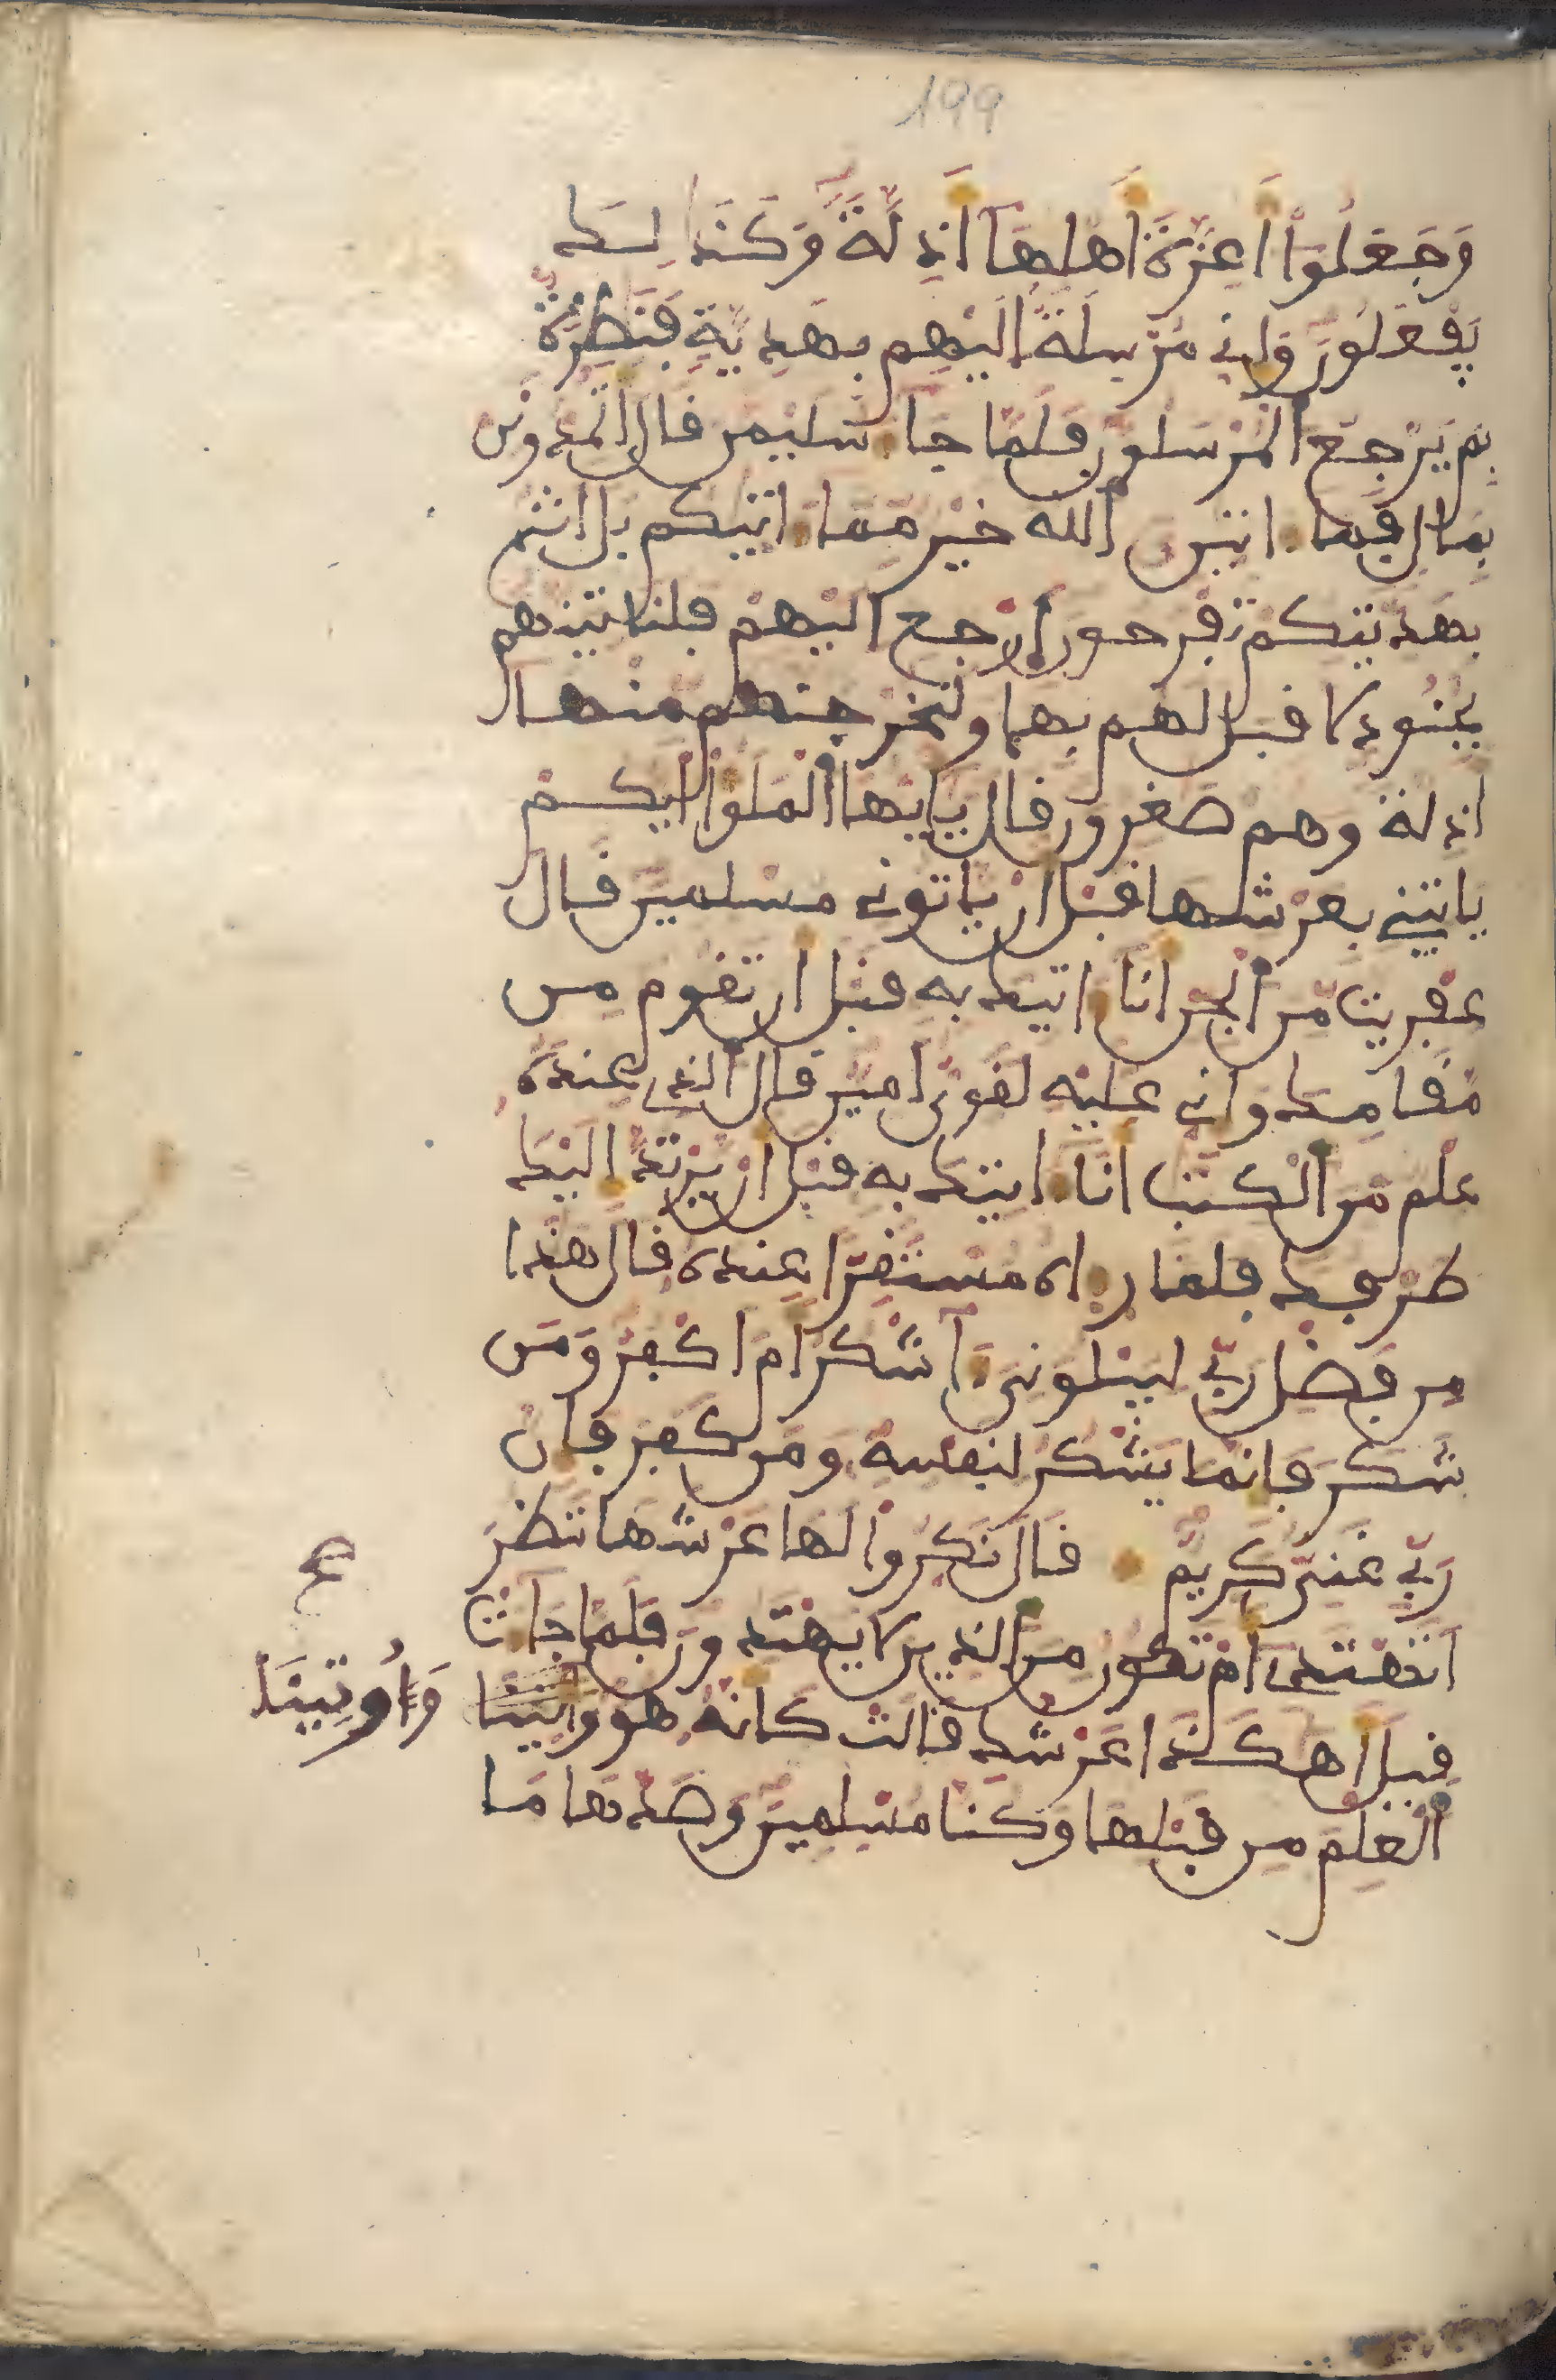 199
وَجَعَلُوٓا أَعِزَّةَ أَهْلِهَآ أَذِلَّةً وَكَذَٰلِكَ
يَفْعَلُونَ وَإِنِّي مُرْسِلَةٌ إِلَيْهِم بِهَدِيَّةٍ فَنَٰظِرَةٌ
بم يَرْجِعُ ٱلْمُرْسَلُونَ فَلَمَّا جَآءَ سُلَيْمَٰنَ قَالَ أَتُمِدُّونَنِ
بِمَالٍ فَمَا ءاتين ٱلله خَيْر مِمَّا ءاتيكم بَل أنتُم
بهديتكم تَفْرحون ٱرْجع إليْهمْ فلناتينهم
بجنُود لا قبل لهم بِهَا ولنخرجنهم منها
أذلة وهم صغرون قال يايها ٱلْمَلَؤا أيكم
ياتيني بعرْشها قبْل أن ياتوني مسلمين قال
عفريت مّن ٱلجن أنا ءاتيك به قبْل أن تقوم من
مَّقامك وَإني عليْه لقوى أمين قال ٱلذي عِندهُ
علْم مّن ٱلْكتب أنا ءاتيك به قبْل أن يرْتدّ إليْك
طرْفك فلما رءاه مسْتقرّا عنده قال هذا
من فضْل ربّي ليبلوني ءآشْكر أمَ اكْفر وَمَن
شكر فإنما يَشْكُر لنفسه ومن كفر فإن
رَبّي غَنيّ كَريم قال نَكّرُوا لها عَرْشها نَنظر
أتهْتدي أمْ تكون من ٱلذين لا يهْتدون فَلَمَّا جَآءت
قيل أهكذا عَرْشك قالت كأنّه هو وأتينا
وَأُوتِينَا
ٱلْعِلْم من قبْلها وكنا مسْلمين وَصَدّها مَا